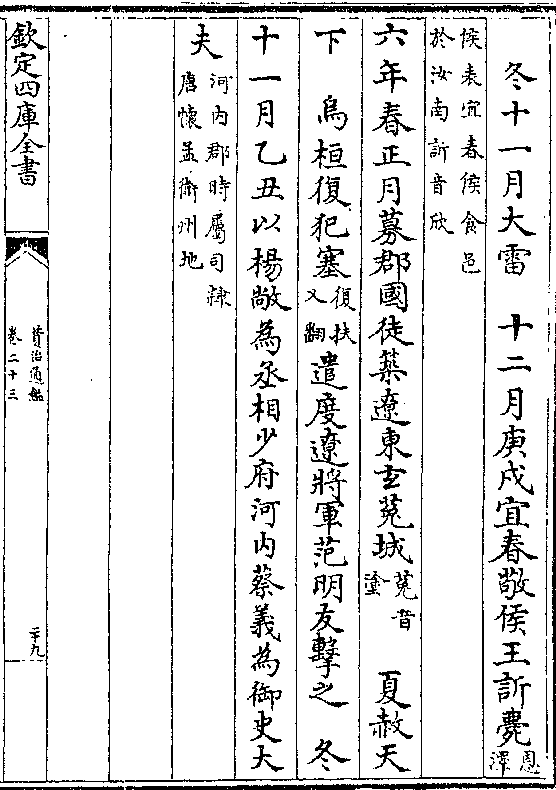 冬十一月大雷　十二月庚戌宜春敬侯王訢薨恩澤
侯表宜春侯食邑
於汝南訢音欣
六年春正月募郡國徒築遼東玄菟城菟音塗　夏赦天
下　烏桓復犯塞復扶又翻遣度遼將軍范明友擊之　冬
十一月乙丑以楊敞為丞相少府河内蔡義為御史大
夫河内郡時屬司隸唐懷孟衛州地
欽定四庫全書
資治通鑑
卷二十三
二十九